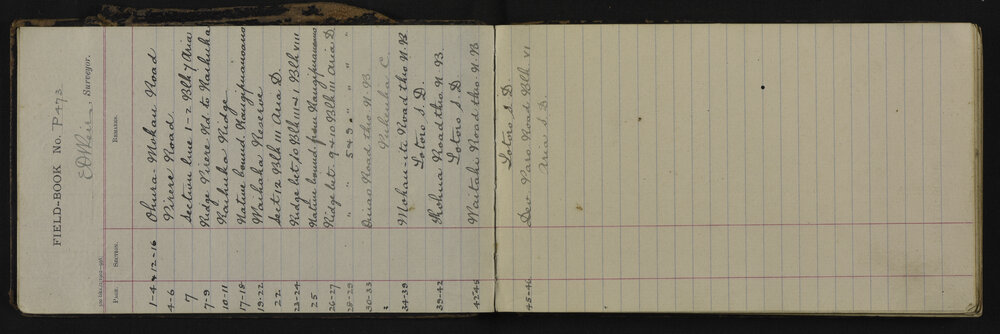 FIELD-BOOK No. P473
Surveyor.
PAGE. SECTION. REMARKS.
1-4 & 12-16 Ohura-Mokau Road
4-6 Pirere Road
7 Section line 1-2 Blk 7 Aria
7-9 Ridge Pirere Rd to Kaihuka
10-11 Kaihuka Ridge
17-18 Native bound. Rangifuanoano
19-22 Waihaka Reserve
22 Sect 12 Blk III Aria D.
23-24 Ridge bet. 10 Blk III & 1 Blk VIII
25 Native bound. from Rangifuanoano
26-27 Ridge bet. 9 & 10 Blk III Aria D.
28-29 " " 5 & 9 " " "
30-33 Road thro N.B
C.
34-39 Mokau-iti Road thro N.B
Totoro S.D.
39-42 Kohua Road thro N.B.
Totoro S.D
42-45 Waitahi Road thro. N.B
Totoro S.D.
45-46 Dev. Paro Road Blk VI
Aria S.D.